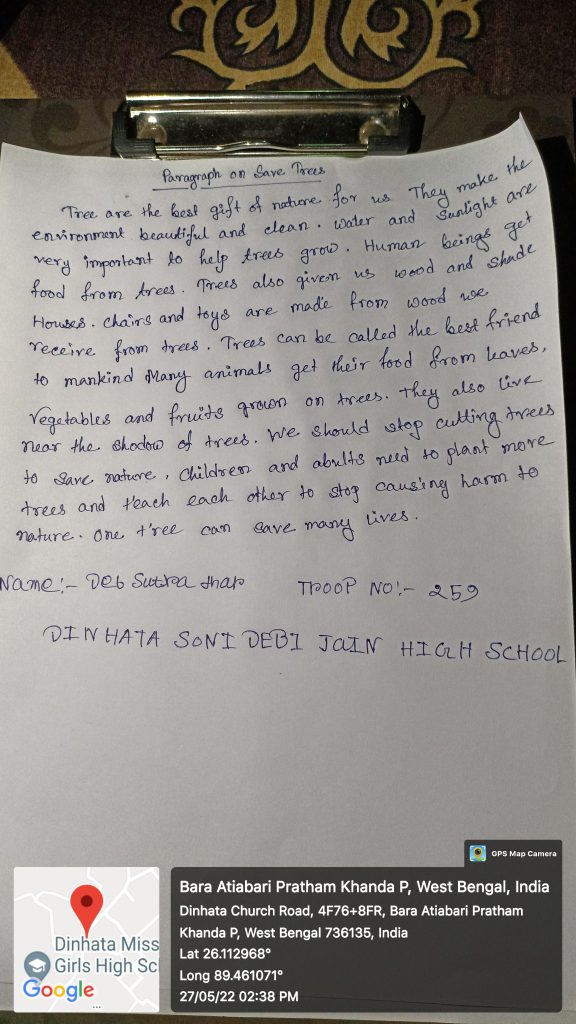 Paragraph on Save Trees
Tree are the best gift of nature for us They make the
environment beautiful and clean. Water and Sunlight are
very important to help trees grow. Human beings get
food from trees. Trees also given us wood and shade
Houses. chairs and toys are made from wood we
receive from trees. Trees can be called the best friend
to mankind Many animals get their food from leaves,
vegetables and fruits grown on trees. They also live
near the shodow of trees. We should stop cutting trees
to save nature, Children and abults need to plant more
trees and teach each other to stop causing harm to
nature. One tree can save many lives.
Name:- Deb Sutra dhar TROOP NO:- 259
DINHATA SONI DEBI JAIN HIGH SCHOOL
GPS Map Camera
Bara Atiabari Pratham Khanda P, West Bengal, India
Dinhata Church Road, 4F76+8FR, Bara Atiabari Pratham
Khanda P, West Bengal 736135, India
Lat 26.112968°
Long 89.461071°
27/05/22 02:38 PM
Dinhata Miss
Girls High Scl
Google